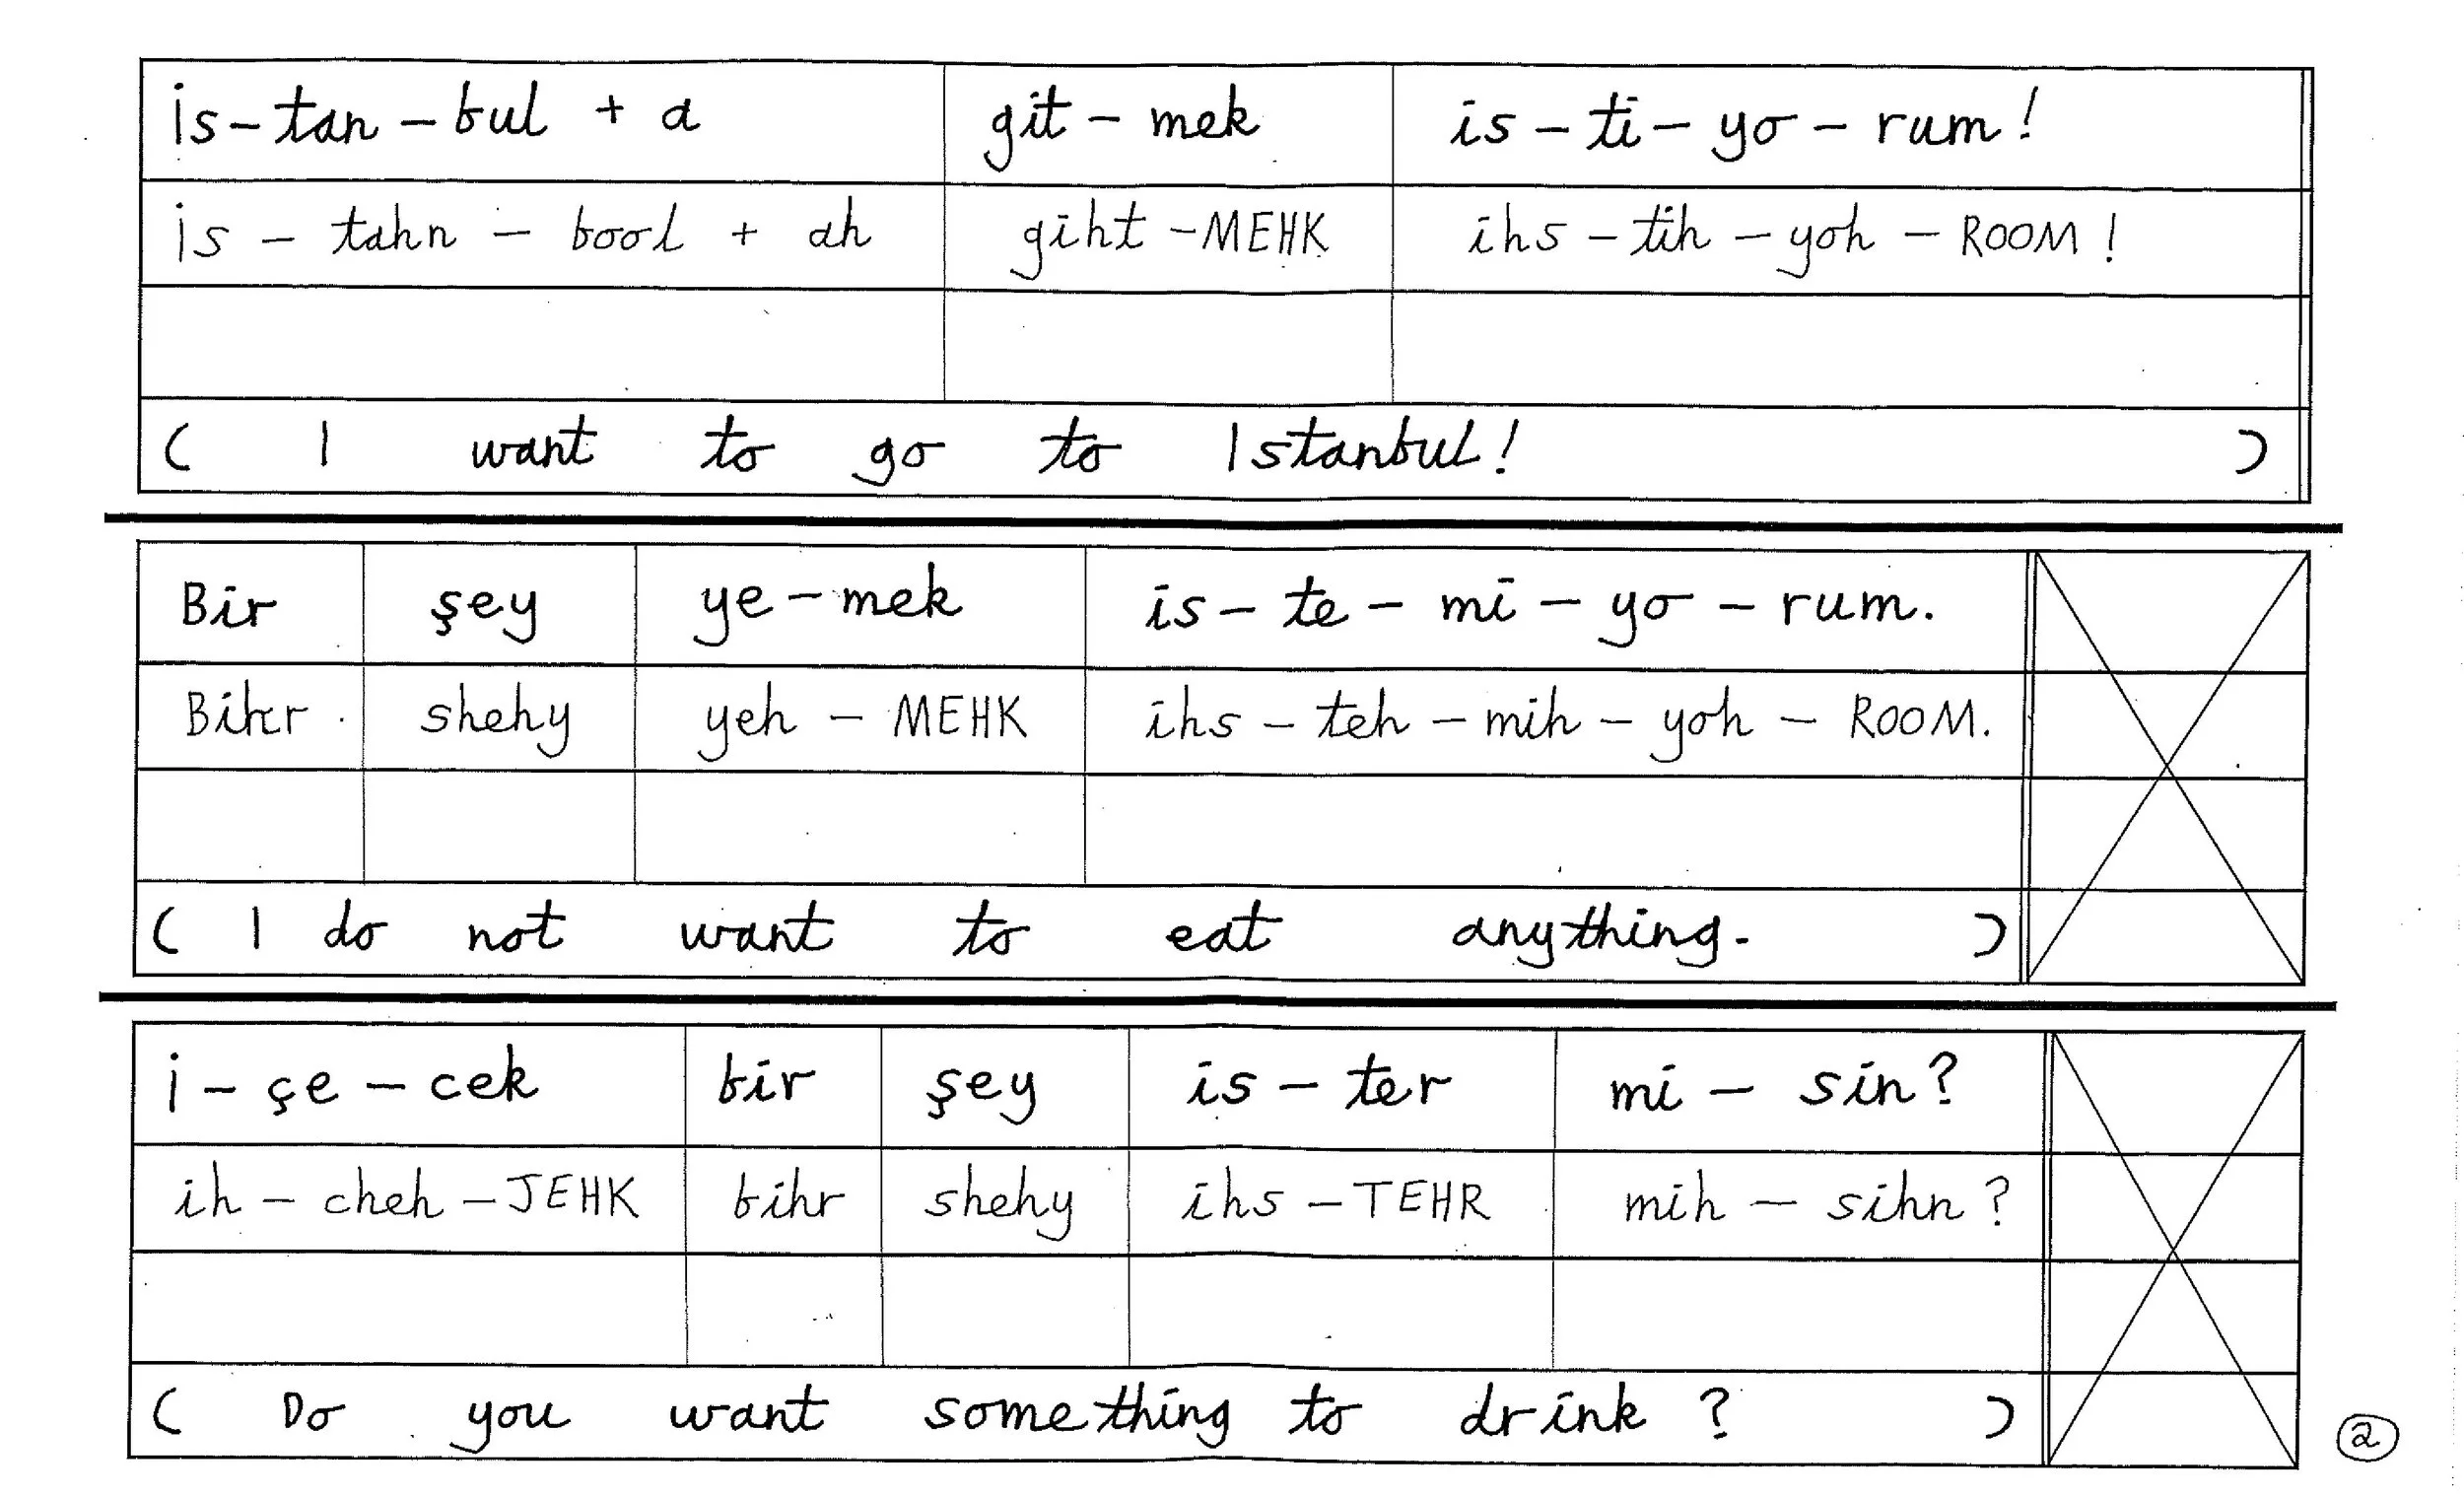 İs – tan – bul + a git – mek is – ti – yo – rum!
is – tahn – bool + ah giht – MEHK ihs – tih – yoh – ROOM!
( I want to go to Istanbul! )
Bir şey ye – mek is – te – mi – yo – rum.
Bihr shehy yeh – MEHK ihs – teh – mih – yoh – ROOM.
( I do not want to eat anything. )
i – çe – cek bir şey is – ter mi – sin?
ih – cheh – JEHK bihr shehy ihs – TEHR mih – sihn?
( Do you want something to drink? )
2